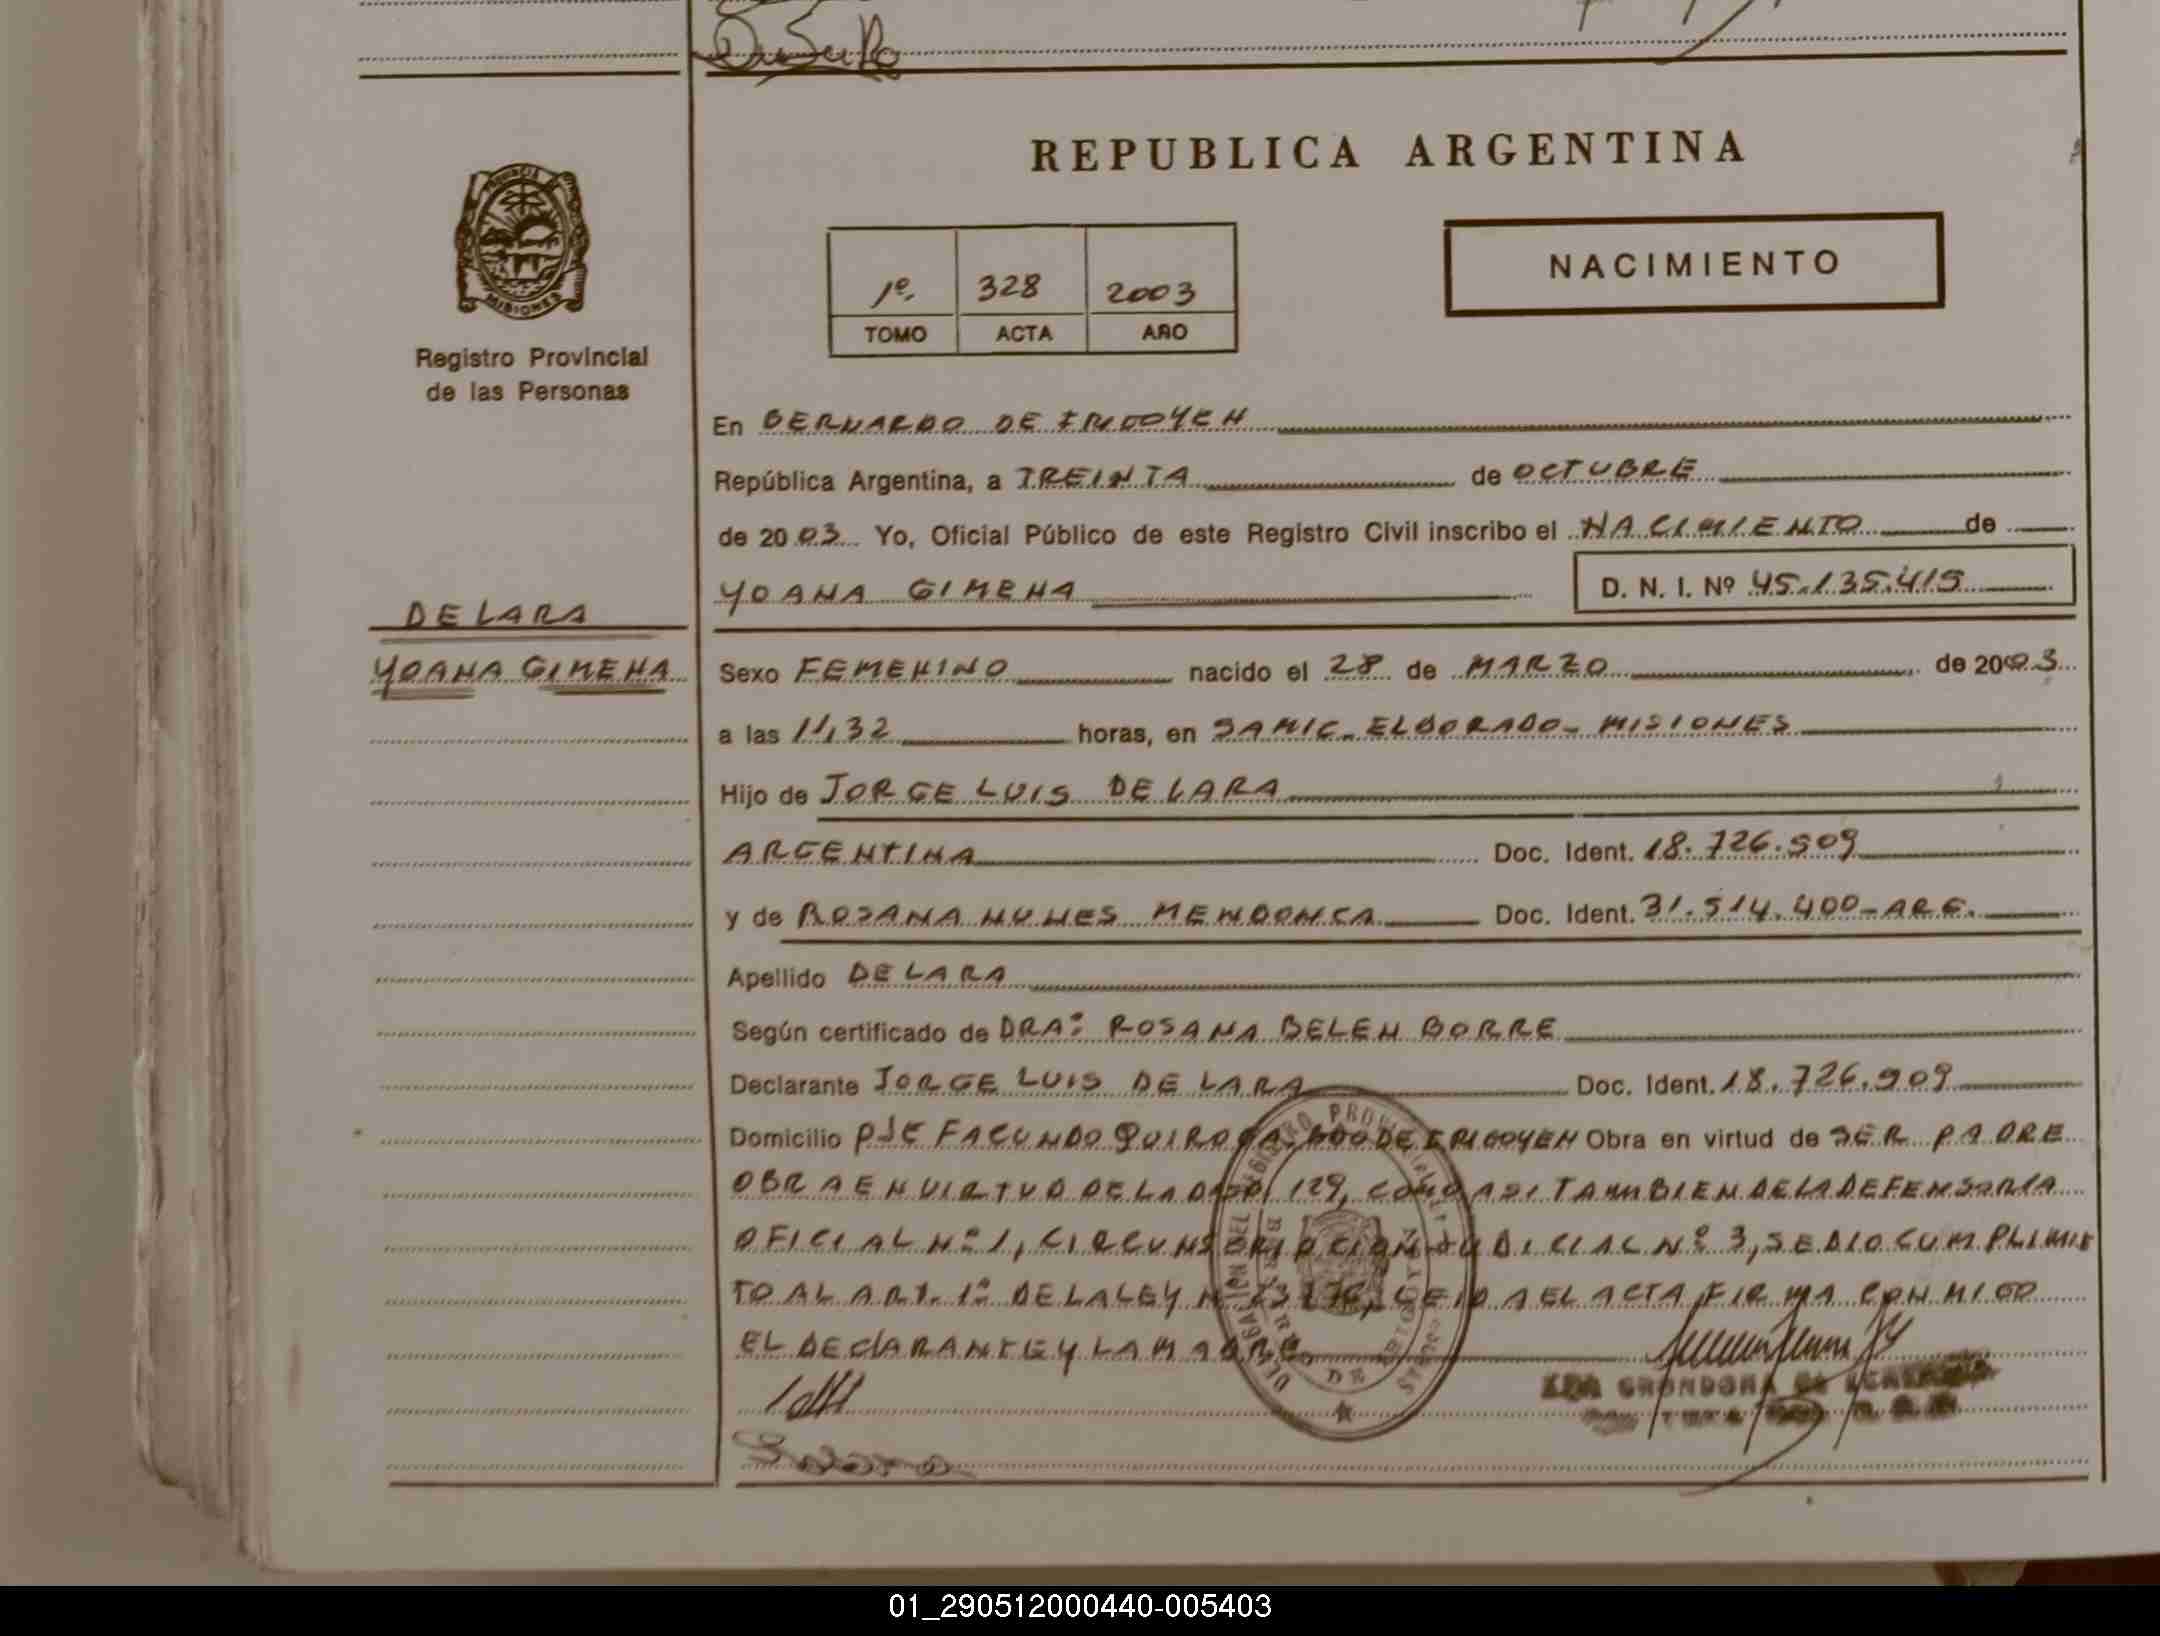 REPUBLICA ARGENTINA
NACIMIENTO
1º. 328 2003
TOMO ACTA AÑO
PROVINCIA DE
MISIONES
Registro Provincial
de las Personas
En BERNARDO DE IRIGOYEN
República Argentina, a TREINTA de OCTUBRE
de 2003 Yo, Oficial Público de este Registro Civil inscribo el NACIMIENTO de
YOANA GIMENA D. N. I. Nº 45.135.419
DE LARA
YOANA GIMENA
Sexo FEMENINO nacido el 28 de MARZO de 2003
a las 11,32 horas, en SAMIC. ELDORADO - MISIONES
Hijo de JORGE LUIS DE LARA
ARGENTINA Doc. Ident. 18.726.909
y de ROSANA NUNES MENDONCA Doc. Ident. 31.514.400-ARG.
Apellido DE LARA
Según certificado de DRAª ROSANA BELEN BORRE
Declarante JORGE LUIS DE LARA Doc. Ident. 18.726.909
Domicilio PJE FACUNDO QUIROGA, BDO DE IRIGOYEN Obra en virtud de SER PADRE
OBRA EN VIRTUD DE LA DISP. 129, COMO ASI TAMBIEN DE LA DEFENSORIA
OFICIAL Nº 1, CIRCUNSCRIPCION JUDICIAL Nº 3, SE DIO CUMPLIMIE
TO AL ART. 1º DE LA LEY LEIDA EL ACTA, FIRMA CONMIGO
EL DECLARANTE Y LA MADRE.
DELEGACION DEL REGISTRO PROVINCIAL
01_290512000440-005403